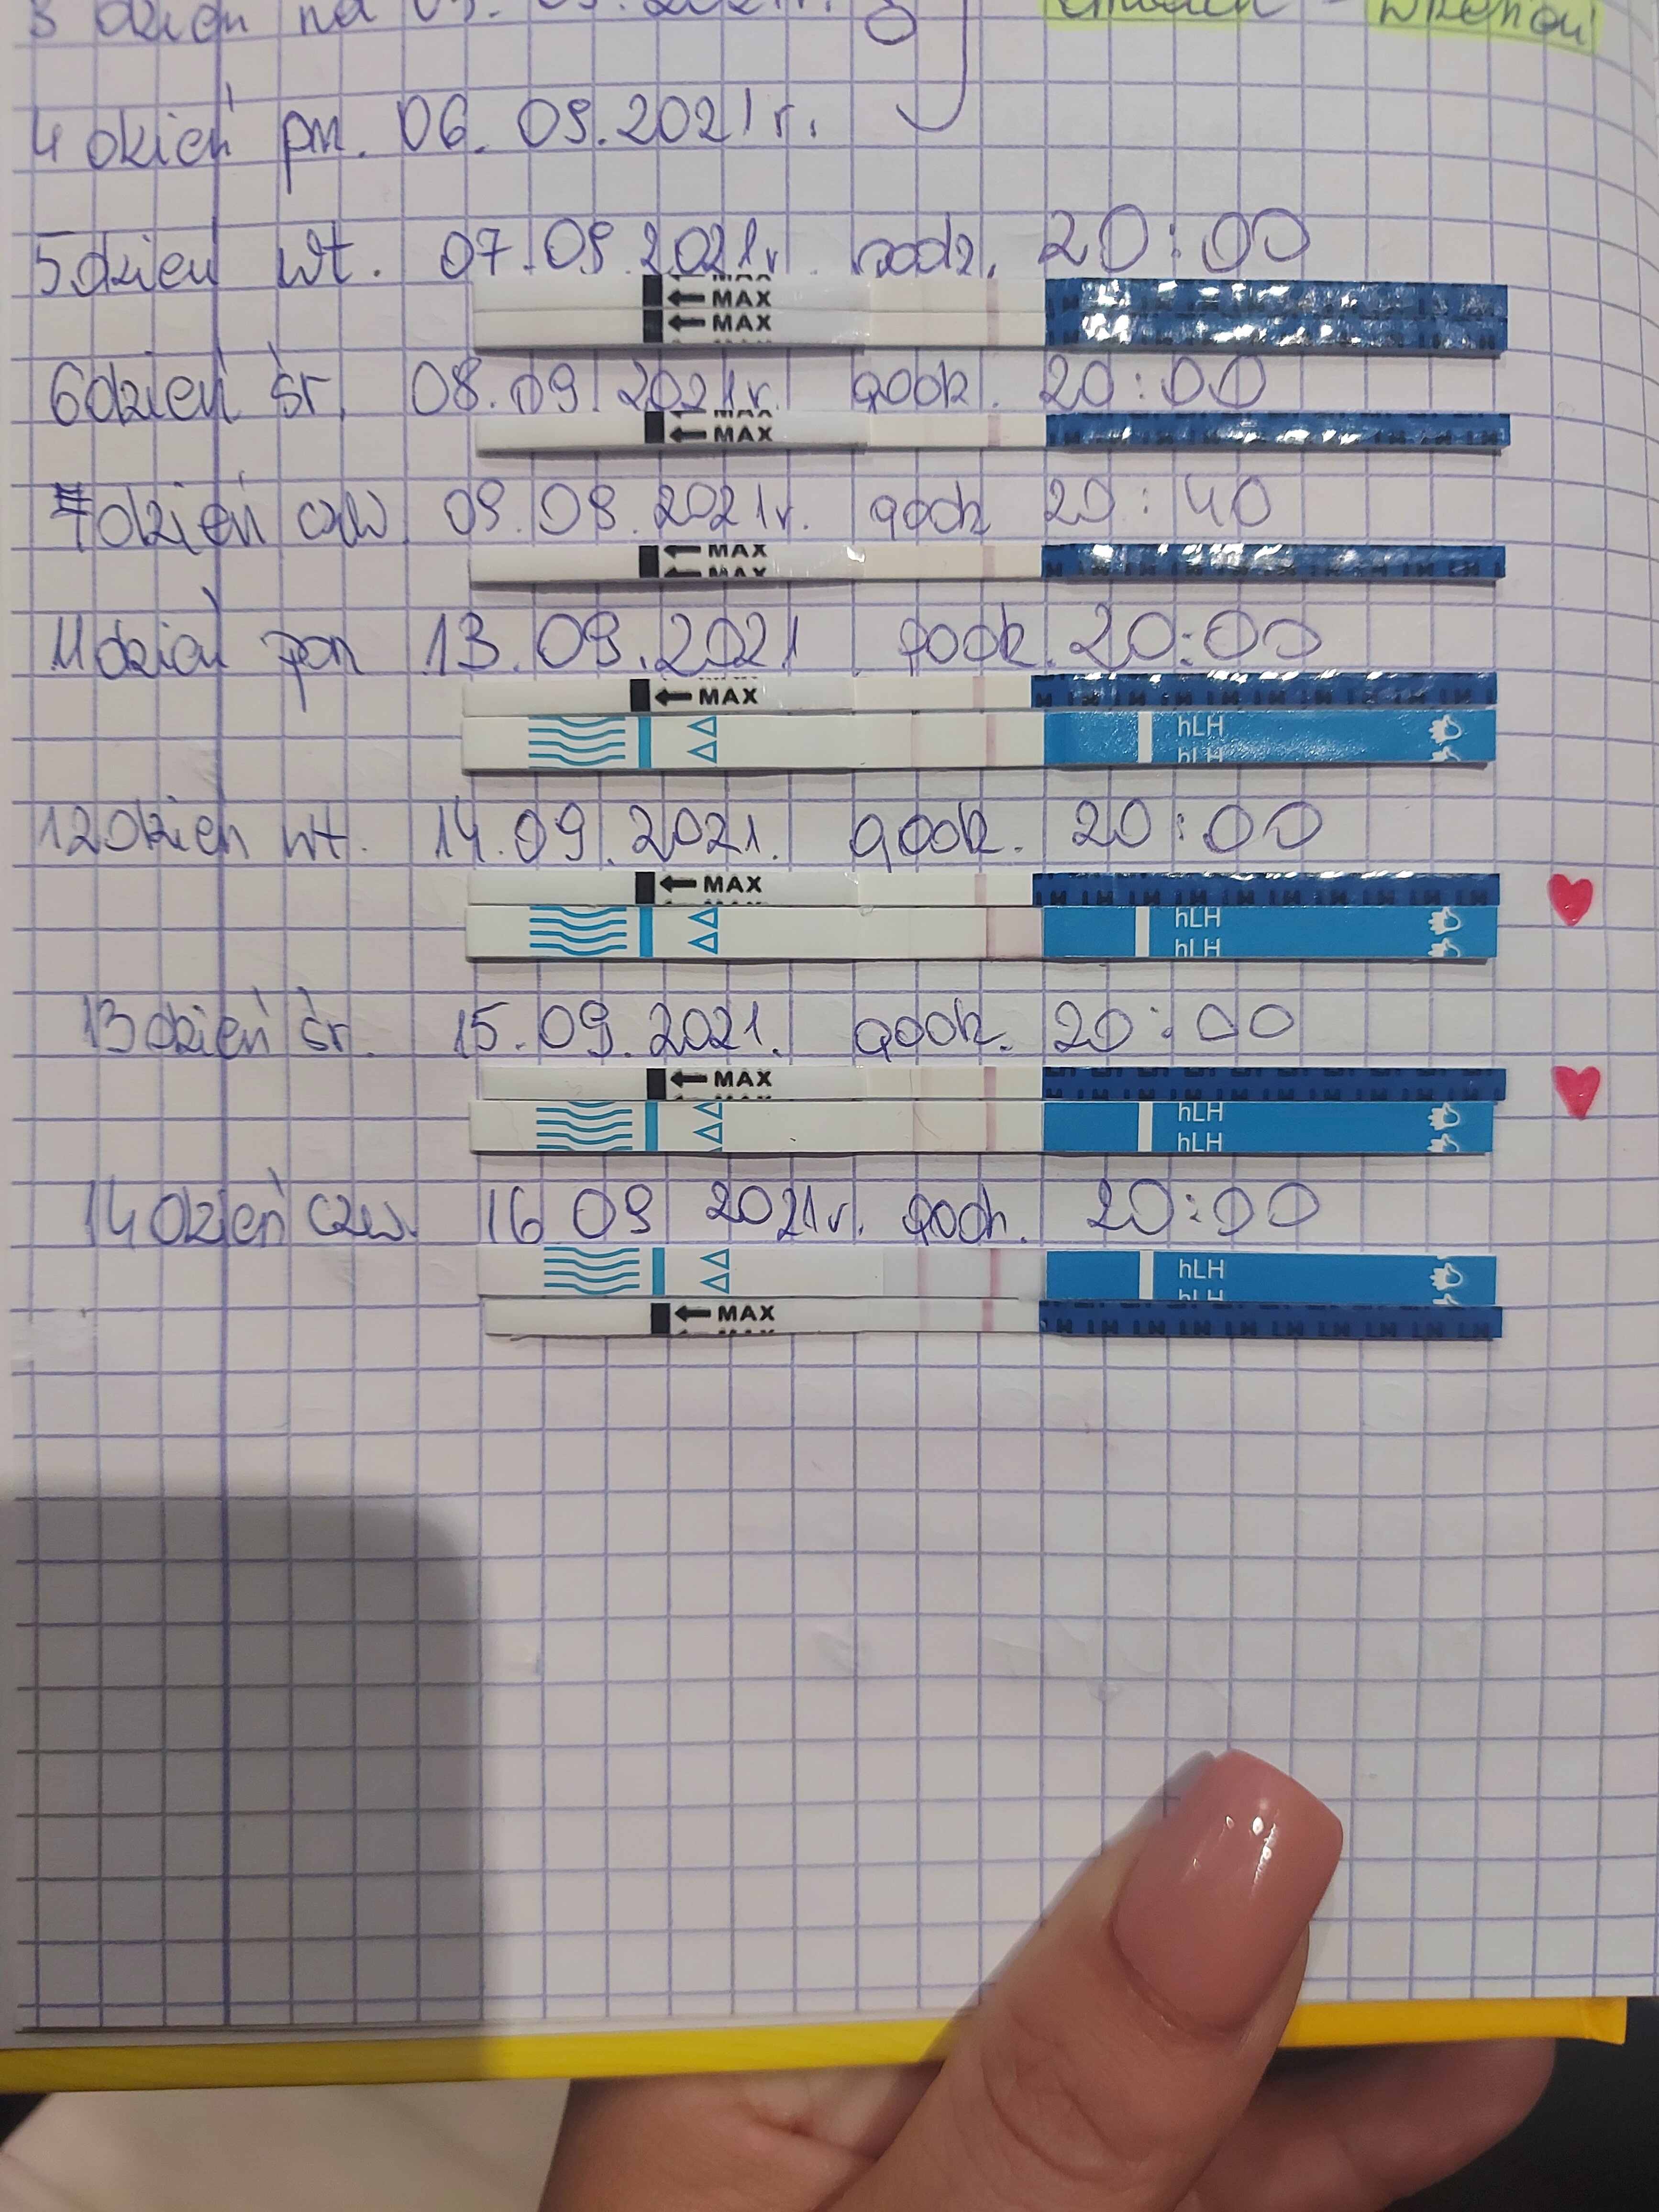 3 dzień
4 dzień pn. 06.09.2021r.
5 dzień wt. 07.09.2021r. godz. 20:00
MAX
MAX
6 dzień śr. 08.09.2021r. godz. 20:00
MAX
7 dzień czw. 09.09.2021r. godz 20:40
MAX
MAX
11 dzień pon 13.09.2021 godz. 20:00
MAX
hLH
hLH
12 dzień wt. 14.09.2021. godz. 20:00
MAX
hLH
hLH
13 dzień śr. 15.09.2021. godz. 20:00
MAX
hLH
hLH
14 dzień czw. 16 09 2021r. godz. 20:00
hLH
hLH
MAX